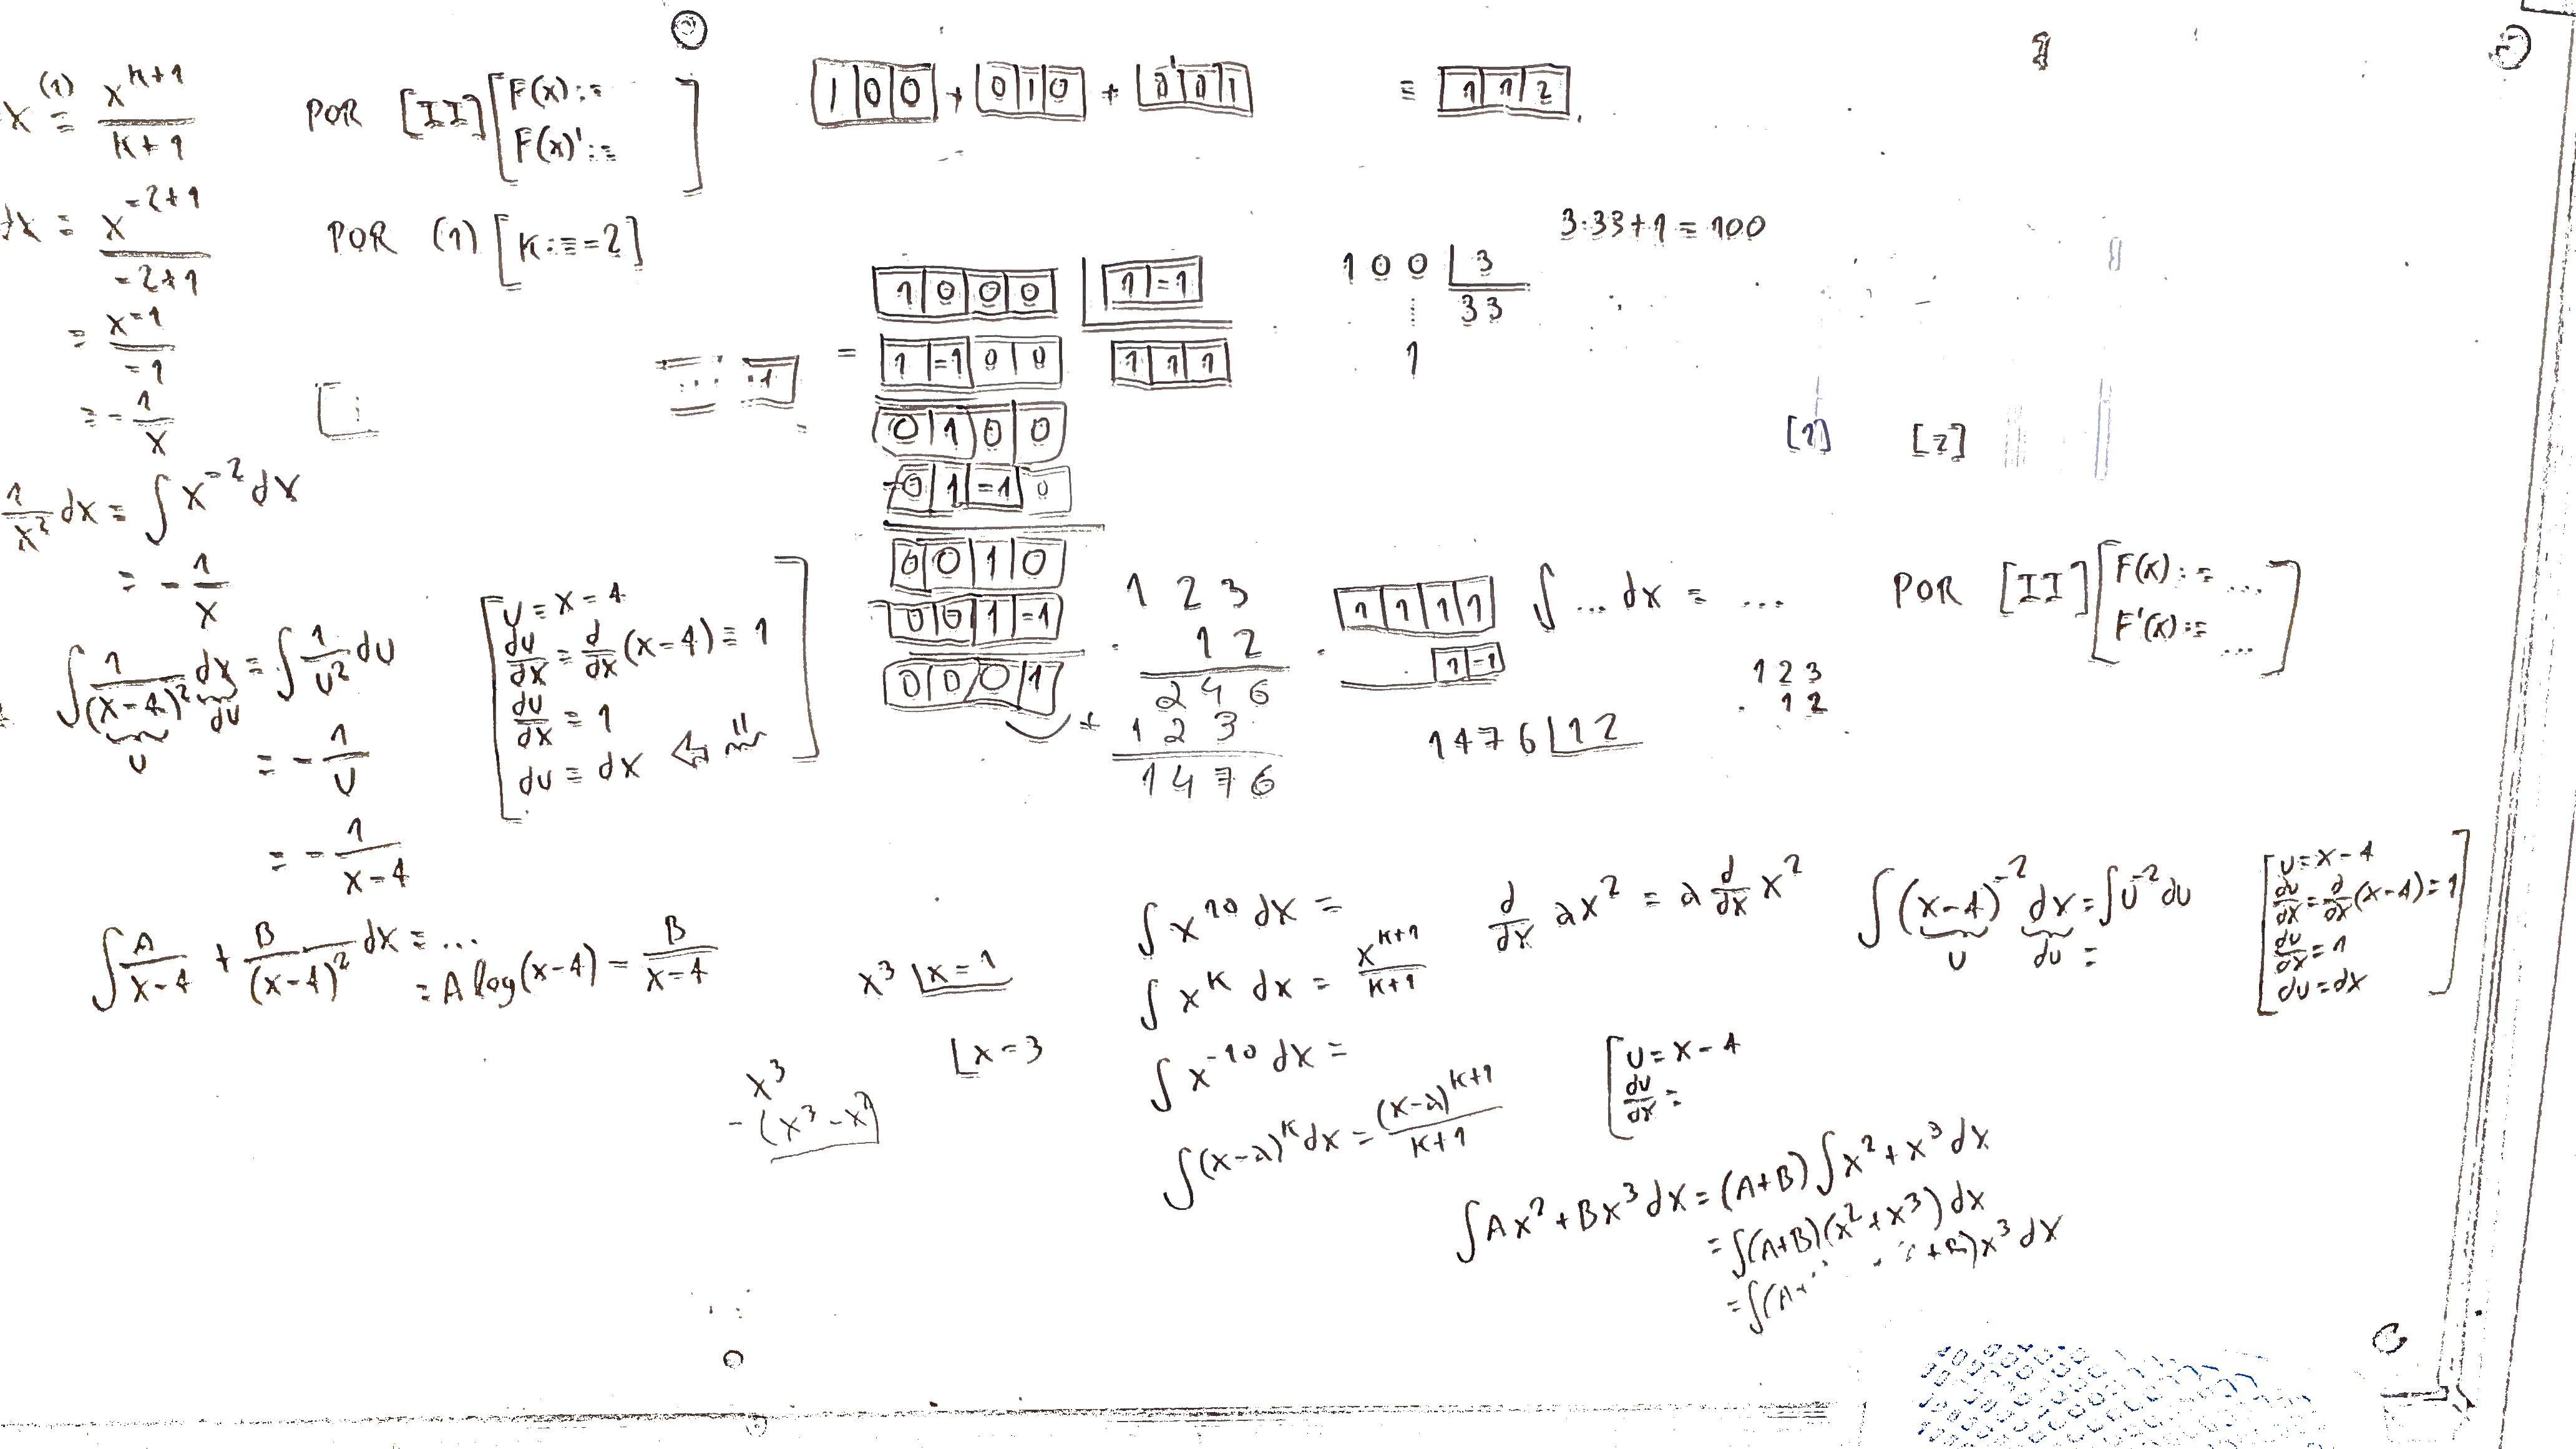 x (1) = x^{k+1} / k+1    POR [II] [F(x):=
F(x)':= ]
dx = x^{-2+1} / -2+1    POR (1) [k:=-2]
= x^{-1} / -1
= - 1/x
1/x² dx = ∫ x^{-2} dx
= - 1/x
∫ 1/(x-4)² dx = ∫ 1/u² du
u    du
= - 1/u
= - 1/(x-4)
[u = x-4
du/dx = d/dx (x-4) = 1
du/dx = 1
du = dx ]
∫ A/(x-4) + B/(x-4)² dx = ...
= A log(x-4) - B/(x-4)
|1|0|0| + |0|1|0| + |0|0|1| = |1|1|2|
|1|0|0|0| |1|-1|
= |1|-1|0|0| |1|1|1|
|0|1|0|0|
-|0|1|-1|0|
|0|0|1|0|
|0|0|1|-1|
|0|0|0|1|
3·33+1 = 100
100 |3
33
1
[1] [2]
1 2 3
· 1 2
2 4 6
+ 1 2 3
1 4 7 6
|1|1|1|1|
· |1|-1|
∫ ... dx = ...    POR [II] [F(x):= ...
F'(x):= ... ]
1 2 3
· 1 2
1476 |12
x³ |x-1
|x-3
x³
-(x³-x²)
∫ x^{10} dx =
∫ x^k dx = x^{k+1} / k+1
∫ x^{-10} dx =
∫ (x-a)^k dx = (x-a)^{k+1} / k+1
d/dx ax² = a d/dx x²
∫ (x-4)^{-2} dx = ∫ u^{-2} du
u    du =
[u = x-4
du/dx = d/dx (x-4) = 1
du/dx = 1
du = dx ]
[u = x-4
du/dx =
∫ Ax² + Bx³ dx = (A+B) ∫ x² + x³ dx
= ∫ (A+B)(x² + x³) dx
= ∫ (A+ +B)x³ dx